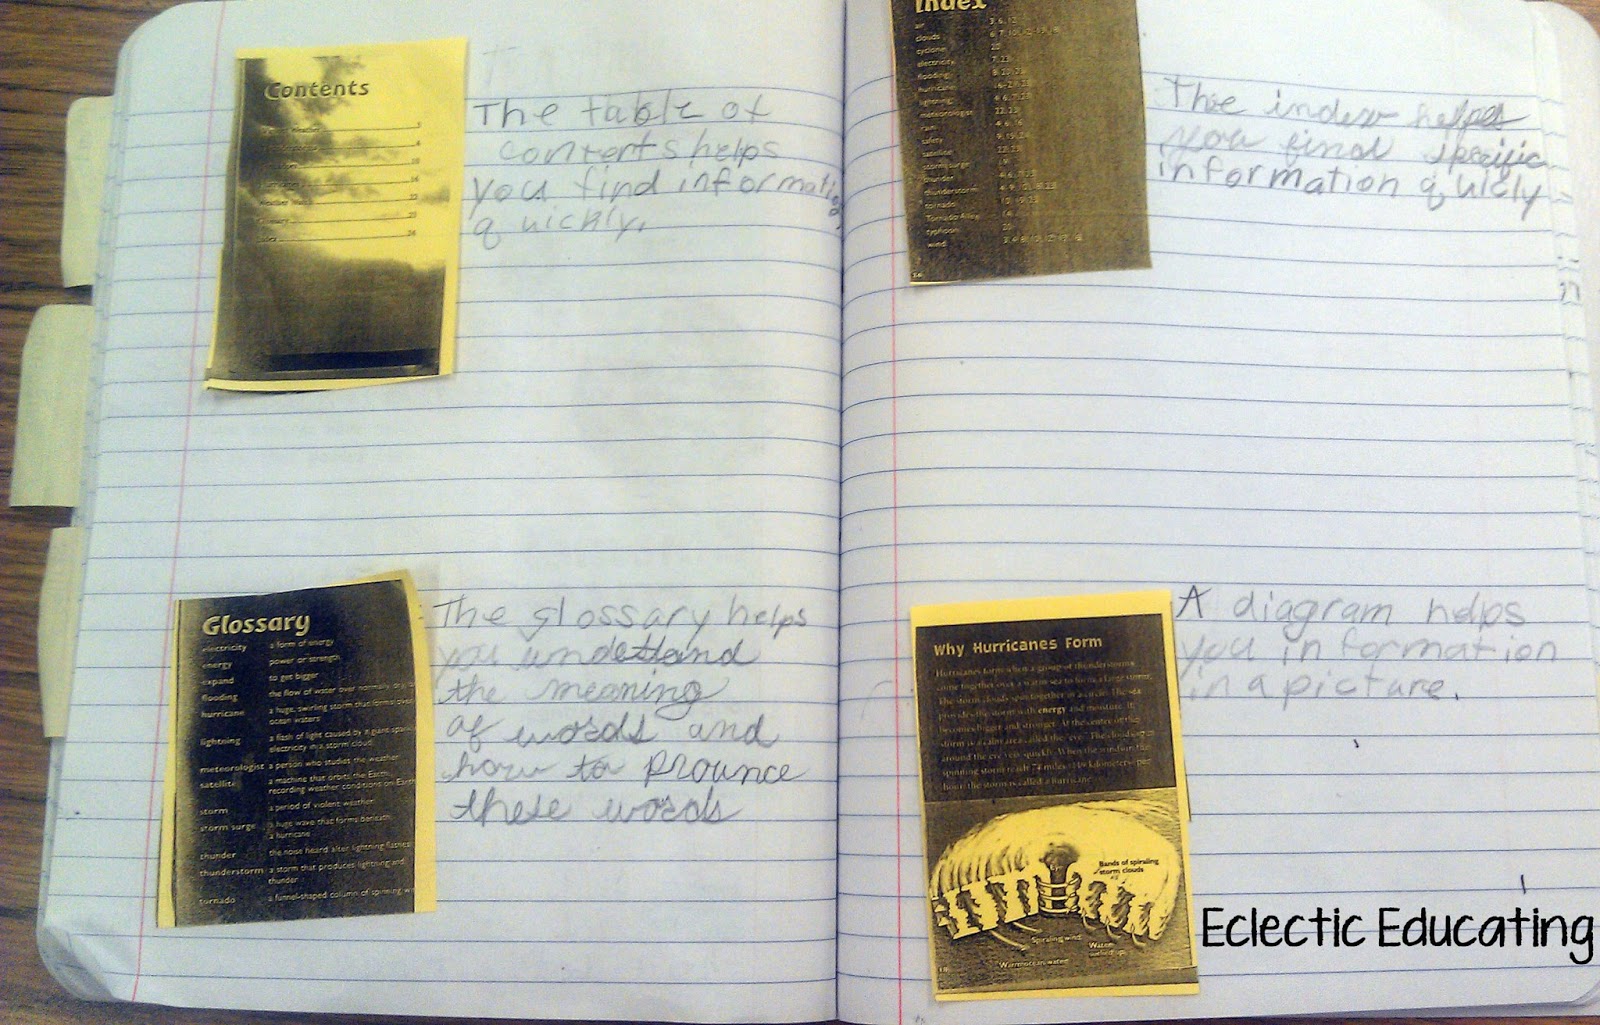 Contents
The table of
contents helps
you find informatio
quickly.
Glossary
electricity a form of energy
energy power or strength
expand to get bigger
flooding the flow of water over normally dry
hurricane a huge, swirling storm that forms over
ocean waters
lightning a flash of light caused by a giant spark
electricity in a storm cloud
meteorologist a person who studies the weather
satellite a machine that orbits the Earth,
recording weather conditions on Earth
storm a period of violent weather
storm surge a huge wave that forms beneath
a hurricane
thunder the noise heard after lightning flashes
thunderstorm a storm that produces lightning and
thunder
tornado a funnel-shaped column of spinning
The glossary helps
you understand
the meaning
of words and
how to prounce
these words
Index
air 3, 6, 12
clouds
cyclone 20
electricity 7, 23
flooding
hurricane
lightning
meteorologist 22, 23
rain
safety
satellite 22, 23
storm surge
thunder
thunderstorm
tornado
Tornado Alley 14
typhoon 20
wind
The index helps
you find specific
information quicly
Why Hurricanes Form
Hurricanes form when a group of thunderstorms
come together over a warm sea to form a large storm.
The storm clouds spin together in a circle. The sea
provides the storm with energy and moisture. It
becomes bigger and stronger. At the center of the
storm is a calm area called the "eye." The clouds spin
around the eye very quickly. When the winds in the
spinning storm reach 74 miles (119 kilometers) per
hour, the storm is called a hurricane.
Bands of spiraling
storm clouds
Spiraling wind
Water
Warm ocean water
18
A diagram helps
you information
in a picture.
Eclectic Educating